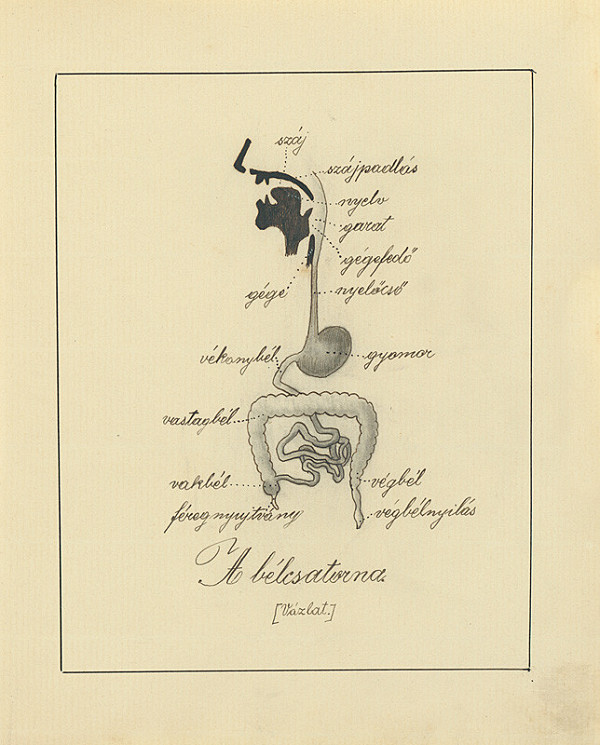 száj
szájpadlás
nyelv
garat
gégefedő
gége
nyelőcső
vékonybél
gyomor
vastagbél
vakbél
végbél
féregnyujtvány
végbélnyilás
A bélcsatorna.
[Vázlat.]